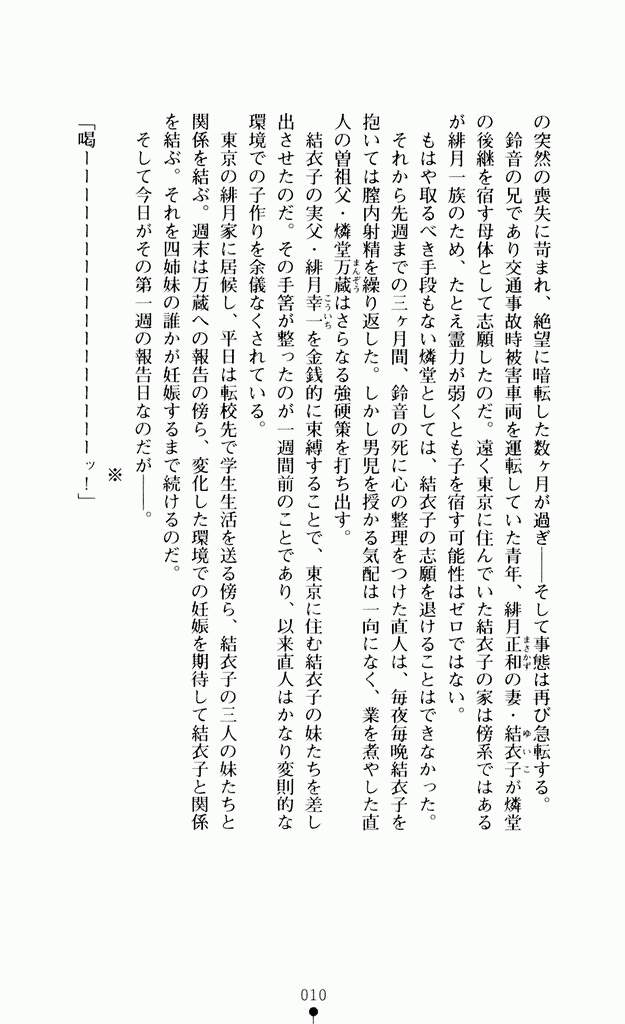 の突然の喪失に苛まれ、絶望に暗転した数ヶ月が過ぎ――そして事態は再び急転する。
鈴音の兄であり交通事故時被害車両を運転していた青年、緋月正和の妻・結衣子が燐堂
まさかず
ゆいこ
の後継を宿す母体として志願したのだ。遠く東京に住んでいた結衣子の家は傍系ではある
が緋月一族のため、たとえ霊力が弱くとも子を宿す可能性はゼロではない。
もはや取るべき手段もない燐堂としては、結衣子の志願を退けることはできなかった。
それから先週までの三ヶ月間、鈴音の死に心の整理をつけた直人は、毎夜毎晩結衣子を
抱いては膣内射精を繰り返した。しかし男児を授かる気配は一向になく、業を煮やした直
人の曽祖父・燐堂万蔵はさらなる強硬策を打ち出す。
まんぞう
結衣子の実父・緋月幸一を金銭的に束縛することで、東京に住む結衣子の妹たちを差し
こういち
出させたのだ。その手筈が整ったのが一週間前のことであり、以来直人はかなり変則的な
環境での子作りを余儀なくされている。
東京の緋月家に居候し、平日は転校先で学生生活を送る傍ら、結衣子の三人の妹たちと
関係を結ぶ。週末は万蔵への報告の傍ら、変化した環境での妊娠を期待して結衣子と関係
を結ぶ。それを四姉妹の誰かが妊娠するまで続けるのだ。
そして今日がその第一週の報告日なのだが――。
※
「喝ーーーーーーーーーーーーーーーーッ！」
010